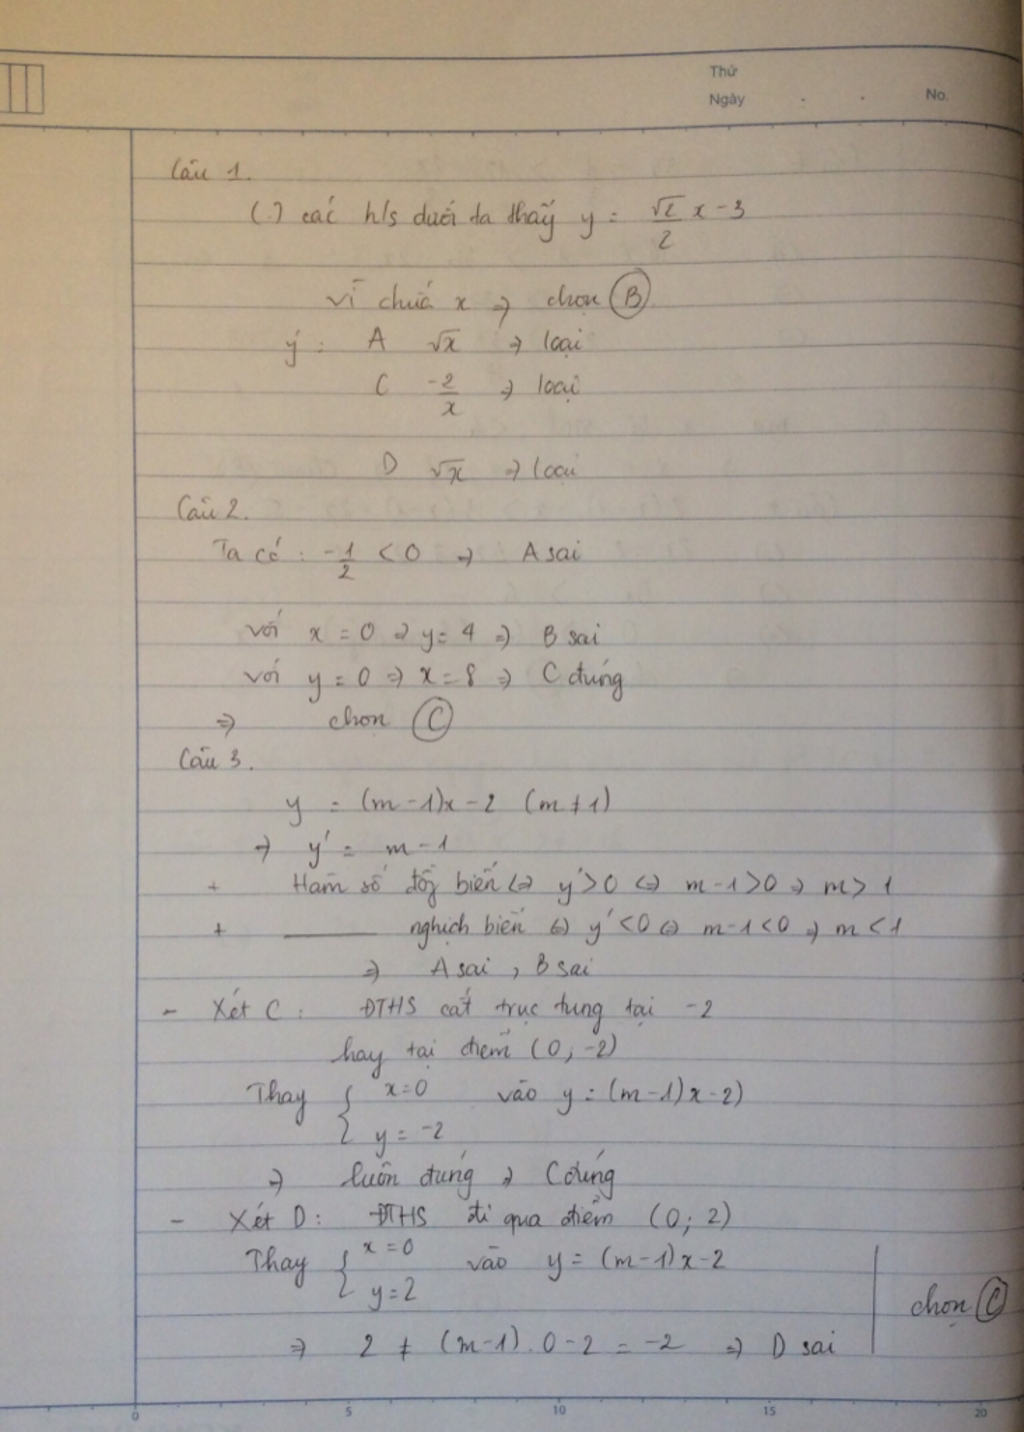 Thứ
Ngày . . No.
Câu 1.
(.) các h/s dưới ta thấy y = √2/2 x - 3
vì chứa x => chọn (B)
ý : A √x => loại
C -2/x => loại
D √x => loại
Câu 2.
Ta có : -1/2 < 0 => A sai
với x = 0 => y = 4 => B sai
với y = 0 => x = 8 => C đúng
=> chọn (C)
Câu 3.
y = (m-1)x - 2 (m ≠ 1)
=> y' = m - 1
+ Hàm số đồg biến <=> y' > 0 <=> m-1 > 0 => m > 1
+ ——— nghịch biến <=> y' < 0 <=> m-1 < 0 => m < 1
=> A sai , B sai
- Xét C : ĐTHS cắt trục tung tại -2
hay tại điểm (0 ; -2)
Thay { x = 0 vào y = (m-1)x - 2)
y = -2
=> luôn đúng => C đúng
- Xét D : ĐTHS đi qua điểm (0 ; 2)
Thay { x = 0 vào y = (m-1)x - 2
y = 2
chọn (C)
=> 2 ≠ (m-1) . 0 - 2 = -2 => D sai
0 5 10 15 20